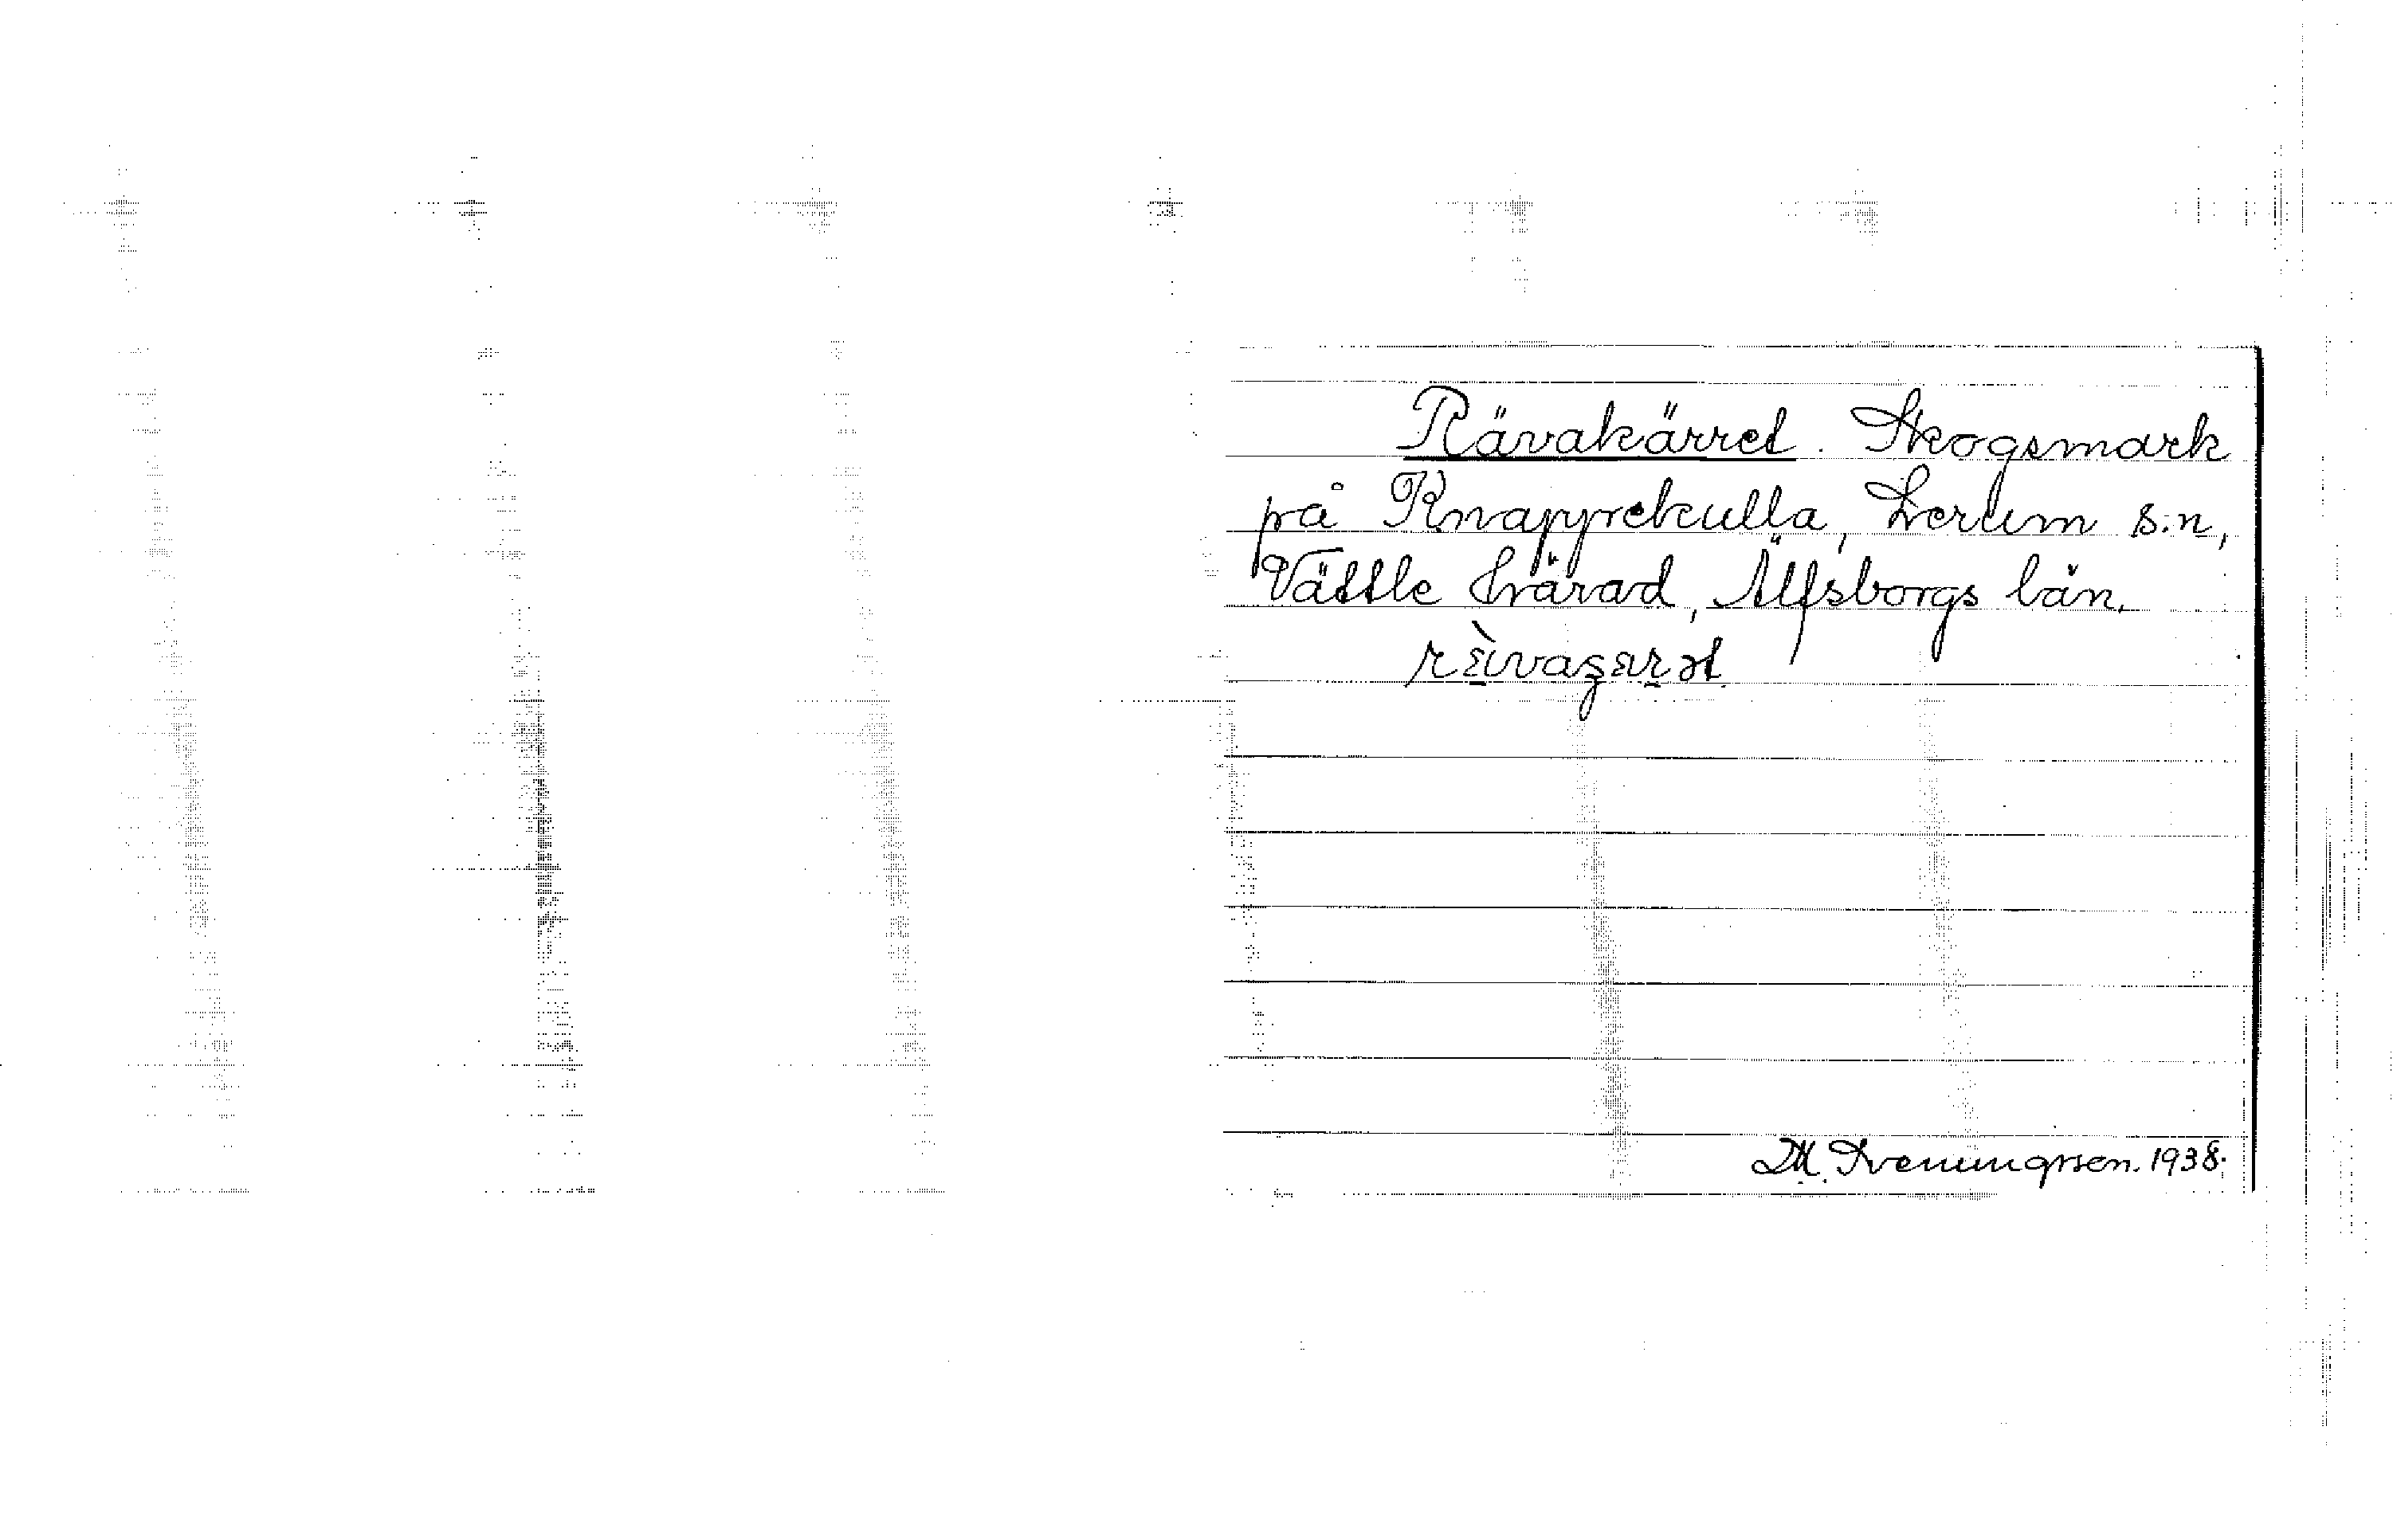 Rävakärret. Skogsmark
på Knappekulla, Lerum s:n,
Vättle härad, Älfsborgs län.
1938.